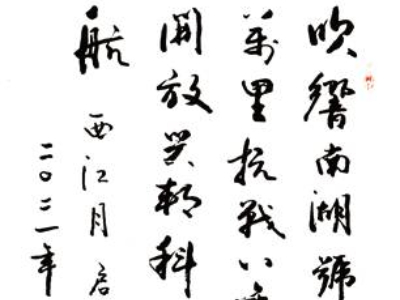 吹響南湖號
萬里抗戰八
開放科
航
西江月启
二〇二一年